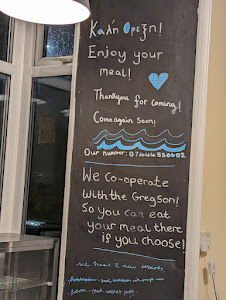 Καλη Ορεξη!
Enjoy your
meal!
Thankyou for coming!
Come again soon!
Our number:
We Co-operate
With the Gregson!
So you can eat
your meal there
if you choose!
we have 2 new